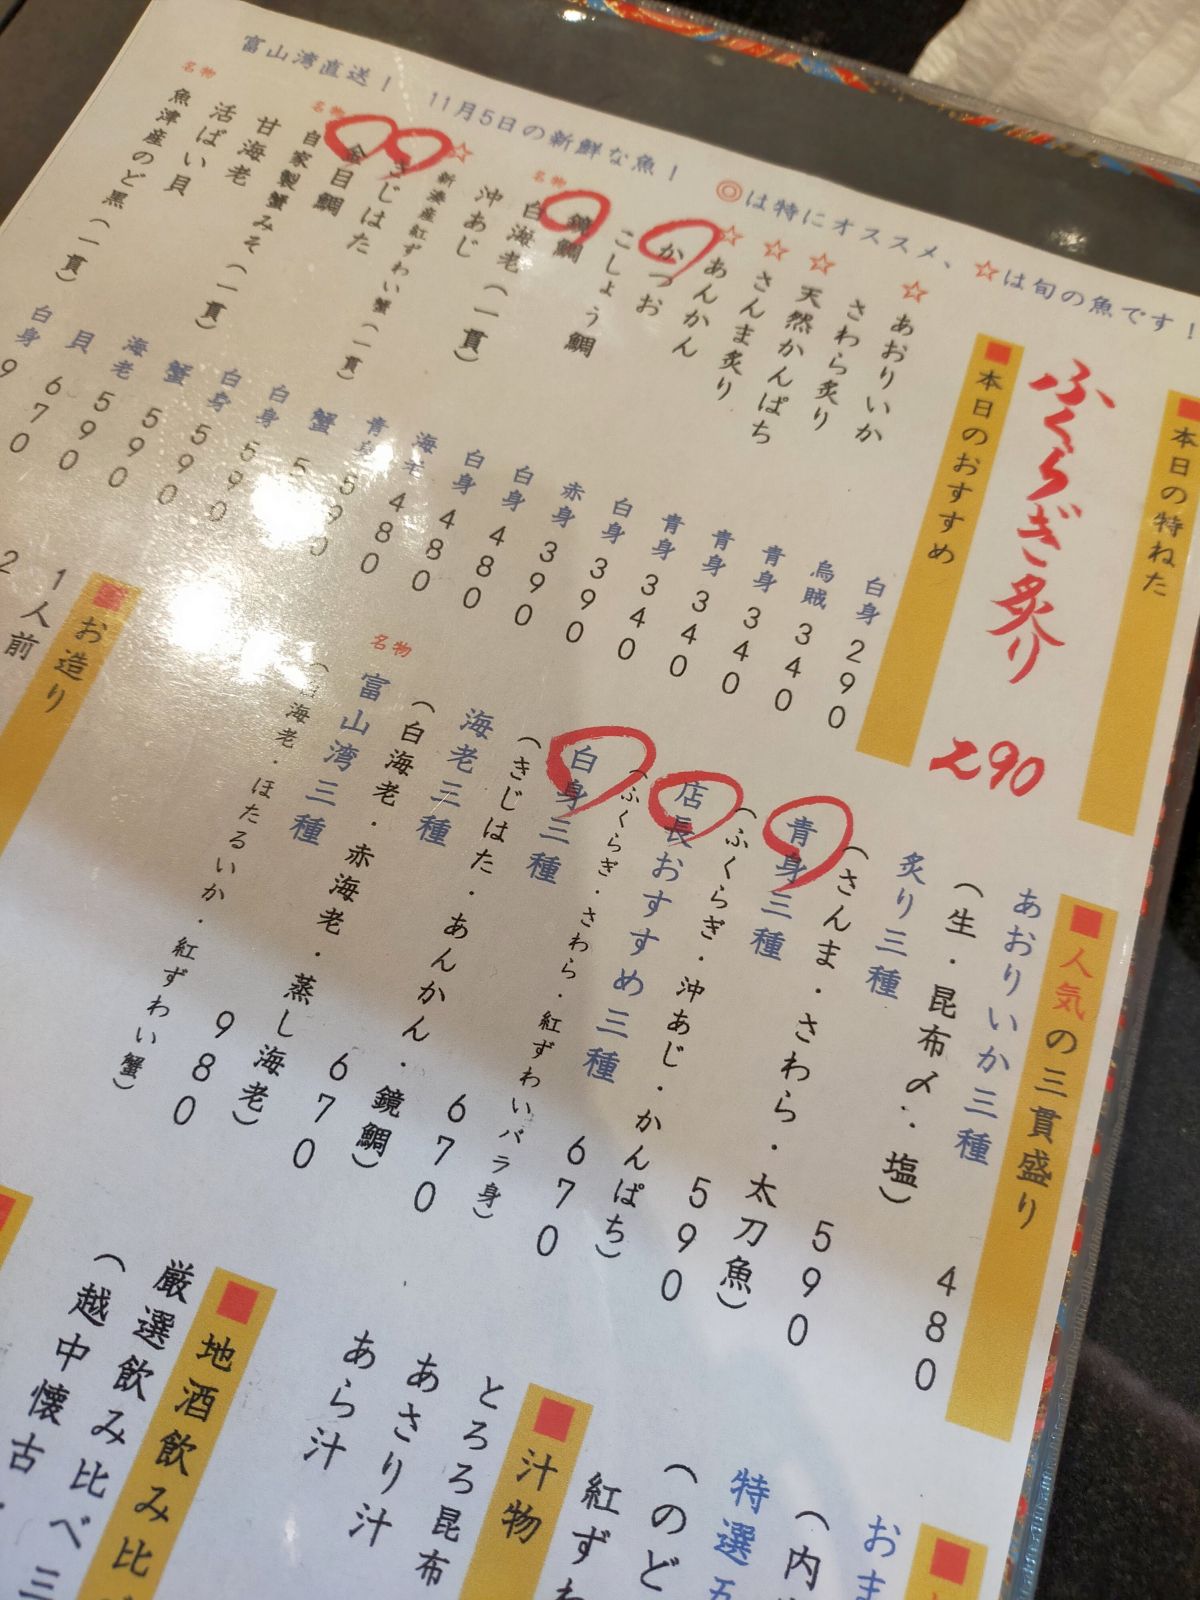 富山湾直送！　11月5日の新鮮な魚！　◎は特にオススメ、☆は旬の魚です！
■本日の特ねた
ふくらぎ炙り 290
■本日のおすすめ
☆あおりいか
さわら炙り
☆天然かんぱち
☆さんま炙り
☆あんかん
かつお
こしょう鯛
鏡鯛
名物 白海老（一貫）
沖あじ
☆新湊産紅ずわい蟹（一貫）
きじはた
金目鯛
名物 自家製蟹みそ（一貫）
甘海老
活ばい貝
名物 魚津産のど黒（一貫）
白身 290
烏賊 340
青身 340
青身 340
青身 340
白身 390
赤身 390
白身 480
白身 480
海老 480
青身 590
蟹 590
白身 590
白身 590
蟹 590
海老 590
貝 670
白身 9
■人気の三貫盛り
あおりいか三種
（生・昆布〆・塩） 480
炙り三種
（さんま・さわら・太刀魚） 590
青身三種
（ふくらぎ・沖あじ・かんぱち） 590
店長おすすめ三種
（ふくらぎ・さわら・紅ずわいバラ身） 670
白身三種
（きじはた・あんかん・鏡鯛） 670
海老三種
（白海老・赤海老・蒸し海老） 670
名物 富山湾三種
（白海老・ほたるいか・紅ずわい蟹） 980
■お造り
1人前
2
おま
（内
特選五
（のど
紅ずわ
■汁物
とろろ昆布
あさり汁
あら汁
■地酒飲み比
厳選飲み比べ三
（越中懐古・